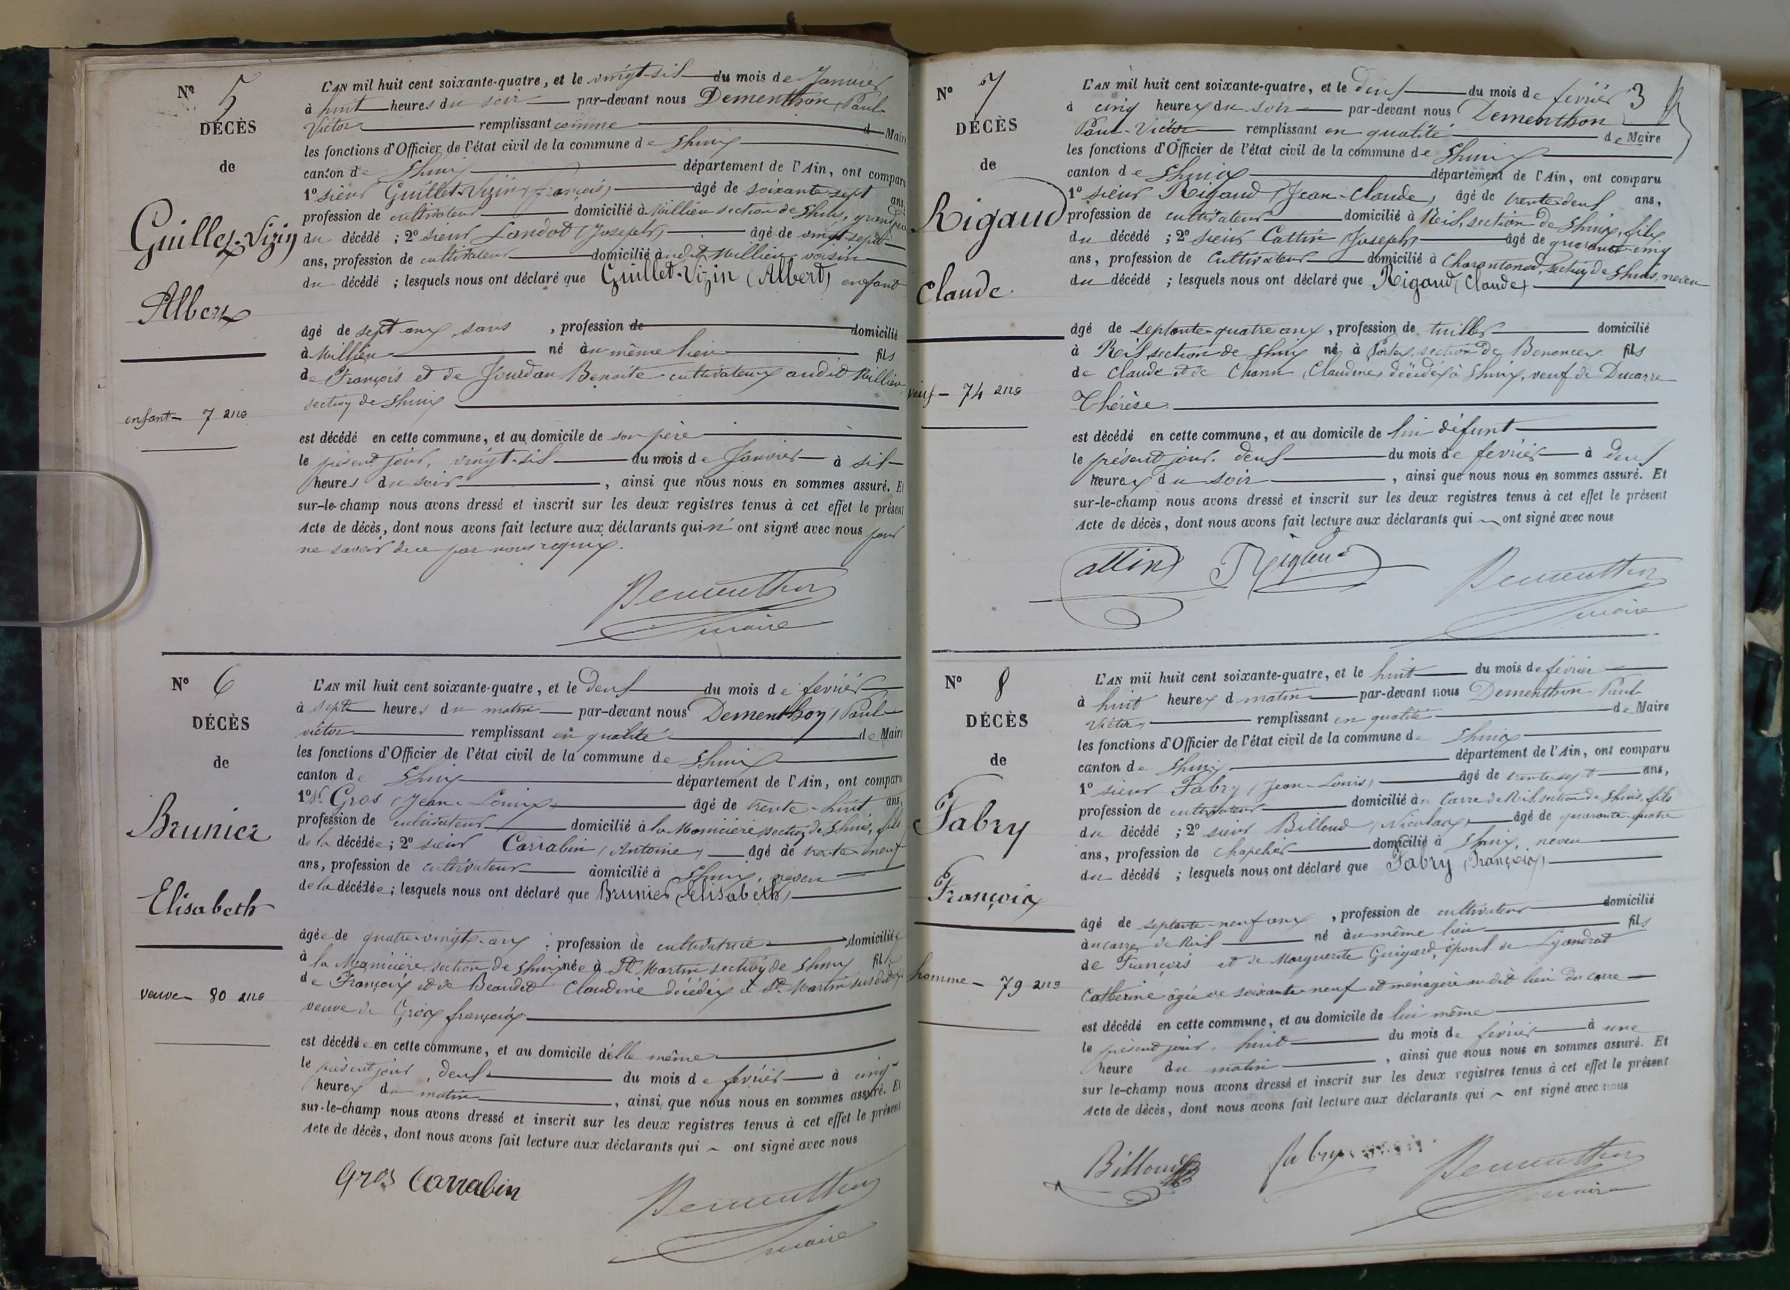 N° 5
DÉCÈS
de
Guillet-Vizin
Albert
enfant - 7 ans
L'AN mil huit cent soixante-quatre, et le vingt-six du mois de Janvier
à huit heures du soir par-devant nous Dementhon, Paul
Victor remplissant comme Maire
les fonctions d'Officier de l'état civil de la commune de Lhuix
canton de Lhuix département de l'Ain, ont comparu
1° sieur Guillet-Vizin (François) âgé de soixante-sept ans,
profession de cultivateur domicilié à Millieu section de Lhuix,
du décédé ; 2° sieur Landot (Joseph) âgé de vingt-sept
ans, profession de cultivateur domicilié audit Millieu voisin
du décédé ; lesquels nous ont déclaré que Guillet-Vizin (Albert) enfant
âgé de sept ans sans , profession de domicilié
à Millieu né au même lieu fils
de François et de Jourdan Benoite cultivateurs audit Millieu
section de Lhuix
est décédé en cette commune, et au domicile de son père
le présent jour, vingt-six du mois de Janvier à six
heures du soir , ainsi que nous nous en sommes assuré. Et
sur-le-champ nous avons dressé et inscrit sur les deux registres tenus à cet effet le présent
Acte de décès, dont nous avons fait lecture aux déclarants qui n'ont signé avec nous pour
ne savoir de ce par nous requis.
Dementhon
maire
N° 6
DÉCÈS
de
Brunier
Elisabeth
veuve - 80 ans
L'AN mil huit cent soixante-quatre, et le deux du mois de fevrier
à sept heures du matin par-devant nous Dementhon, Paul
victor remplissant en qualité de Maire
les fonctions d'Officier de l'état civil de la commune de Lhuix
canton de Lhuix département de l'Ain, ont comparu
1° Sr Gros (Jean-Louis) âgé de trente-huit ans,
profession de cultivateur domicilié à la Manicière section de Lhuix, fils
de la décédée ; 2° sieur Carrabin (Antoine) âgé de trente-neuf
ans, profession de cultivateur domicilié à Lhuix, neveu
de la décédée ; lesquels nous ont déclaré que Brunier (Elisabeth)
âgée de quatre-vingts ans , profession de cultivatrice domiciliée
à la Manicière section de Lhuix née à St Martin section de Lhuix fille
de François et de Beaudet Claudine décédés à St Martin susdit
veuve de Gros françois
est décédée en cette commune, et au domicile d'elle même
le présent jour, deux du mois de fevrier à cinq
heures du matin , ainsi que nous nous en sommes assuré. Et
sur-le-champ nous avons dressé et inscrit sur les deux registres tenus à cet effet le présent
Acte de décès, dont nous avons fait lecture aux déclarants qui ont signé avec nous
Gros Carrabin
Dementhon
maire
3
N° 7
DÉCÈS
de
Rigaud
Claude
veuf - 74 ans
L'AN mil huit cent soixante-quatre, et le deux du mois de fevrier
à cinq heures du soir par-devant nous Dementhon
Paul-Victor remplissant en qualité de Maire
les fonctions d'Officier de l'état civil de la commune de Lhuix
canton de Lhuix département de l'Ain, ont comparu
1° sieur Rigaud (Jean-Claude) âgé de trente-deux ans,
profession de cultivateur domicilié à Rix, section de Lhuix, fils
du décédé ; 2° sieur Cattin (Joseph) âgé de quarante-cinq
ans, profession de cultivateur domicilié à Charentonod, section de Lhuis, neveu
du décédé ; lesquels nous ont déclaré que Rigaud (Claude)
âgé de septante-quatre ans, profession de domicilié
à Rix section de Lhuix né à section de Benonces fils
de Claude et de Chanu (Claudine) décédés à Lhuix, veuf de Ducarre
Thérèse
est décédé en cette commune, et au domicile de lui défunt
le présent jour, deux du mois de fevrier à deux
heures du soir , ainsi que nous nous en sommes assuré. Et
sur-le-champ nous avons dressé et inscrit sur les deux registres tenus à cet effet le présent
Acte de décès, dont nous avons fait lecture aux déclarants qui ont signé avec nous
Cattin Rigaud
Dementhon
maire
N° 8
DÉCÈS
de
Fabry
François
homme - 79 ans
L'AN mil huit cent soixante-quatre, et le huit du mois de février
à huit heures d matin par-devant nous Dementhon Paul
Victor remplissant en qualité de Maire
les fonctions d'Officier de l'état civil de la commune de Lhuix
canton de Lhuix département de l'Ain, ont comparu
1° sieur Fabry (Jean-Louis) âgé de trente-sept ans,
profession de cultivateur domicilié au Carre de Rix section de Lhuis, fils
du décédé ; 2° sieur Billoud (Nicolas) âgé de quarante-quatre
ans, profession de chapelier domicilié à Lhuix, neveu
du décédé ; lesquels nous ont déclaré que Fabry (François)
âgé de septante-neuf ans , profession de cultivateur domicilié
au carre de Rix né au même lieu fils
de François et de Marguerite Guigard, époux de
Catherine âgée de soixante-neuf et ménagère audit lieu du carre
est décédé en cette commune, et au domicile de lui même
le présent jour, huit du mois de fevrier à une
heure du matin , ainsi que nous nous en sommes assuré. Et
sur le-champ nous avons dressé et inscrit sur les deux registres tenus à cet effet le présent
Acte de décès, dont nous avons fait lecture aux déclarants qui ont signé avec nous
Billoud fabry
Dementhon
maire